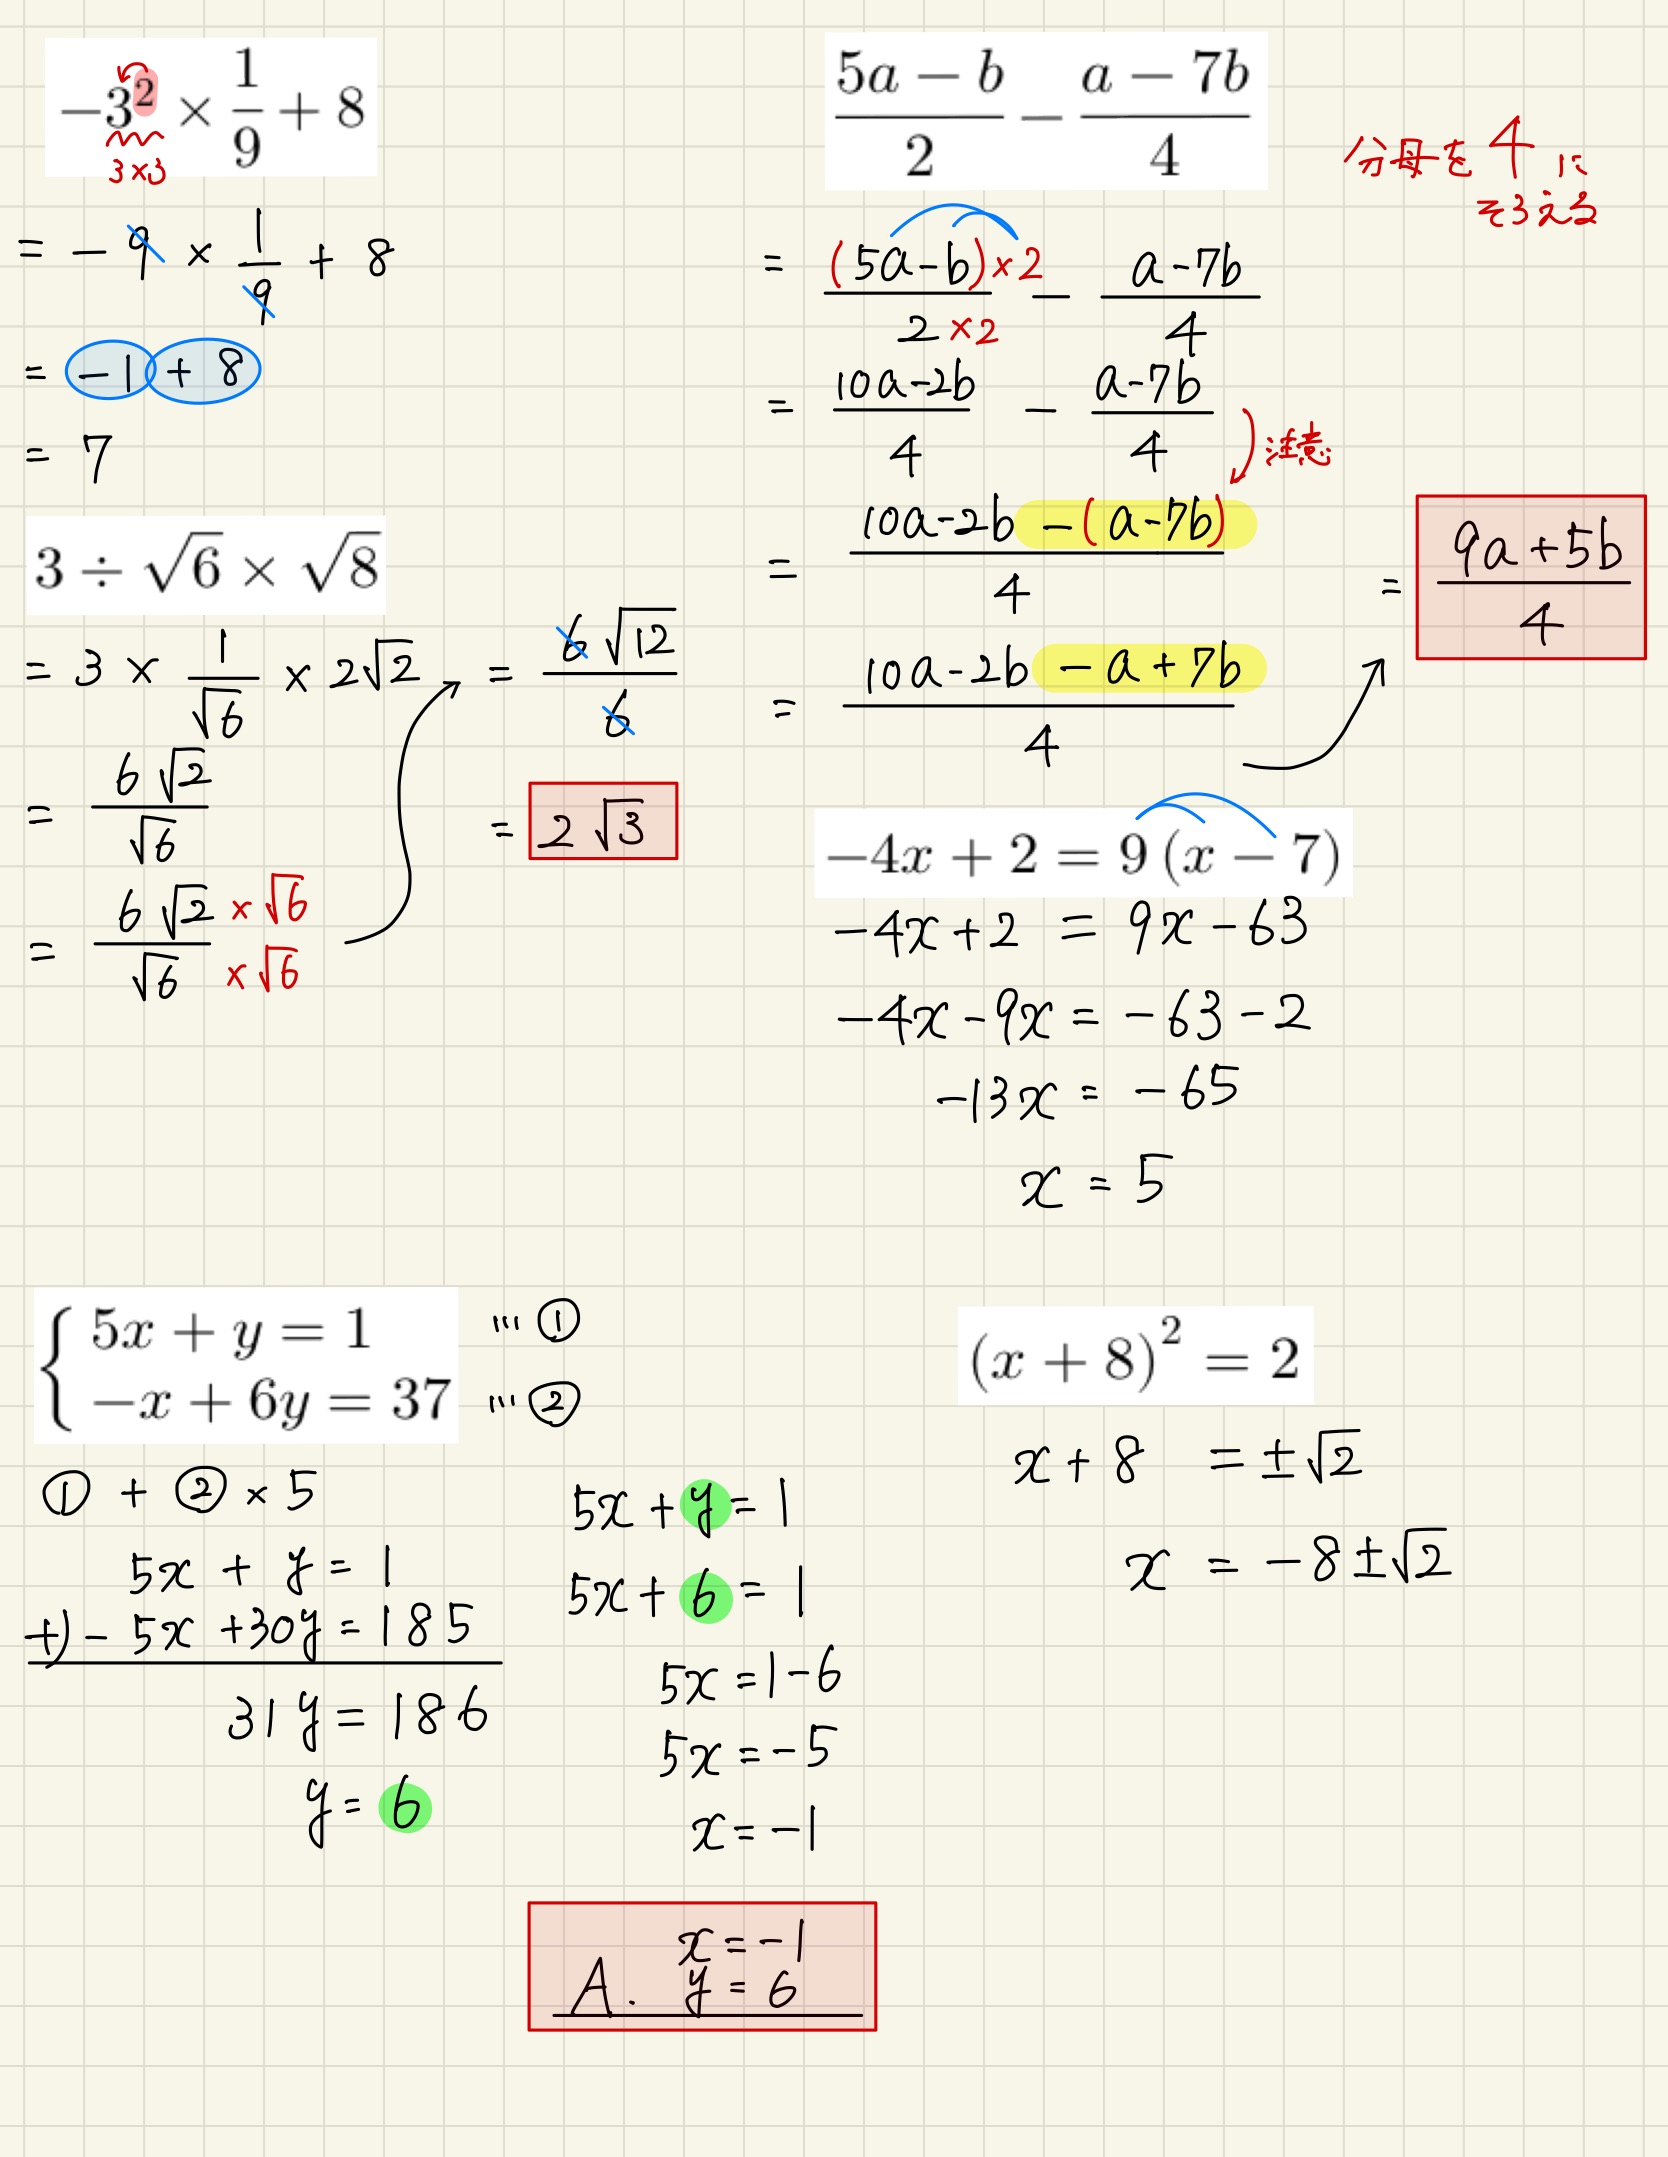 −3² × 1/9 + 8
3×3
= −9 × 1/9 + 8
= −1 + 8
= 7
3 ÷ √6 × √8
= 3 × 1/√6 × 2√2
= 6√2/√6
= 6√2×√6/√6×√6
= 6√12/6
= 2√3
(5a − b)/2 − (a − 7b)/4
分母を4に
そろえる
= (5a−b)×2/2×2 − (a−7b)/4
= (10a−2b)/4 − (a−7b)/4
注意
= (10a−2b−(a−7b))/4
= (10a−2b−a+7b)/4
= (9a+5b)/4
−4x + 2 = 9(x − 7)
−4x+2 = 9x−63
−4x−9x = −63−2
−13x = −65
x = 5
{ 5x + y = 1 …①
−x + 6y = 37 …②
① + ②×5
5x + y = 1
+)−5x+30y=185
31y=186
y=6
5x+y=1
5x+6=1
5x=1−6
5x=−5
x=−1
x=−1
A. y=6
(x + 8)² = 2
x+8 = ±√2
x = −8±√2